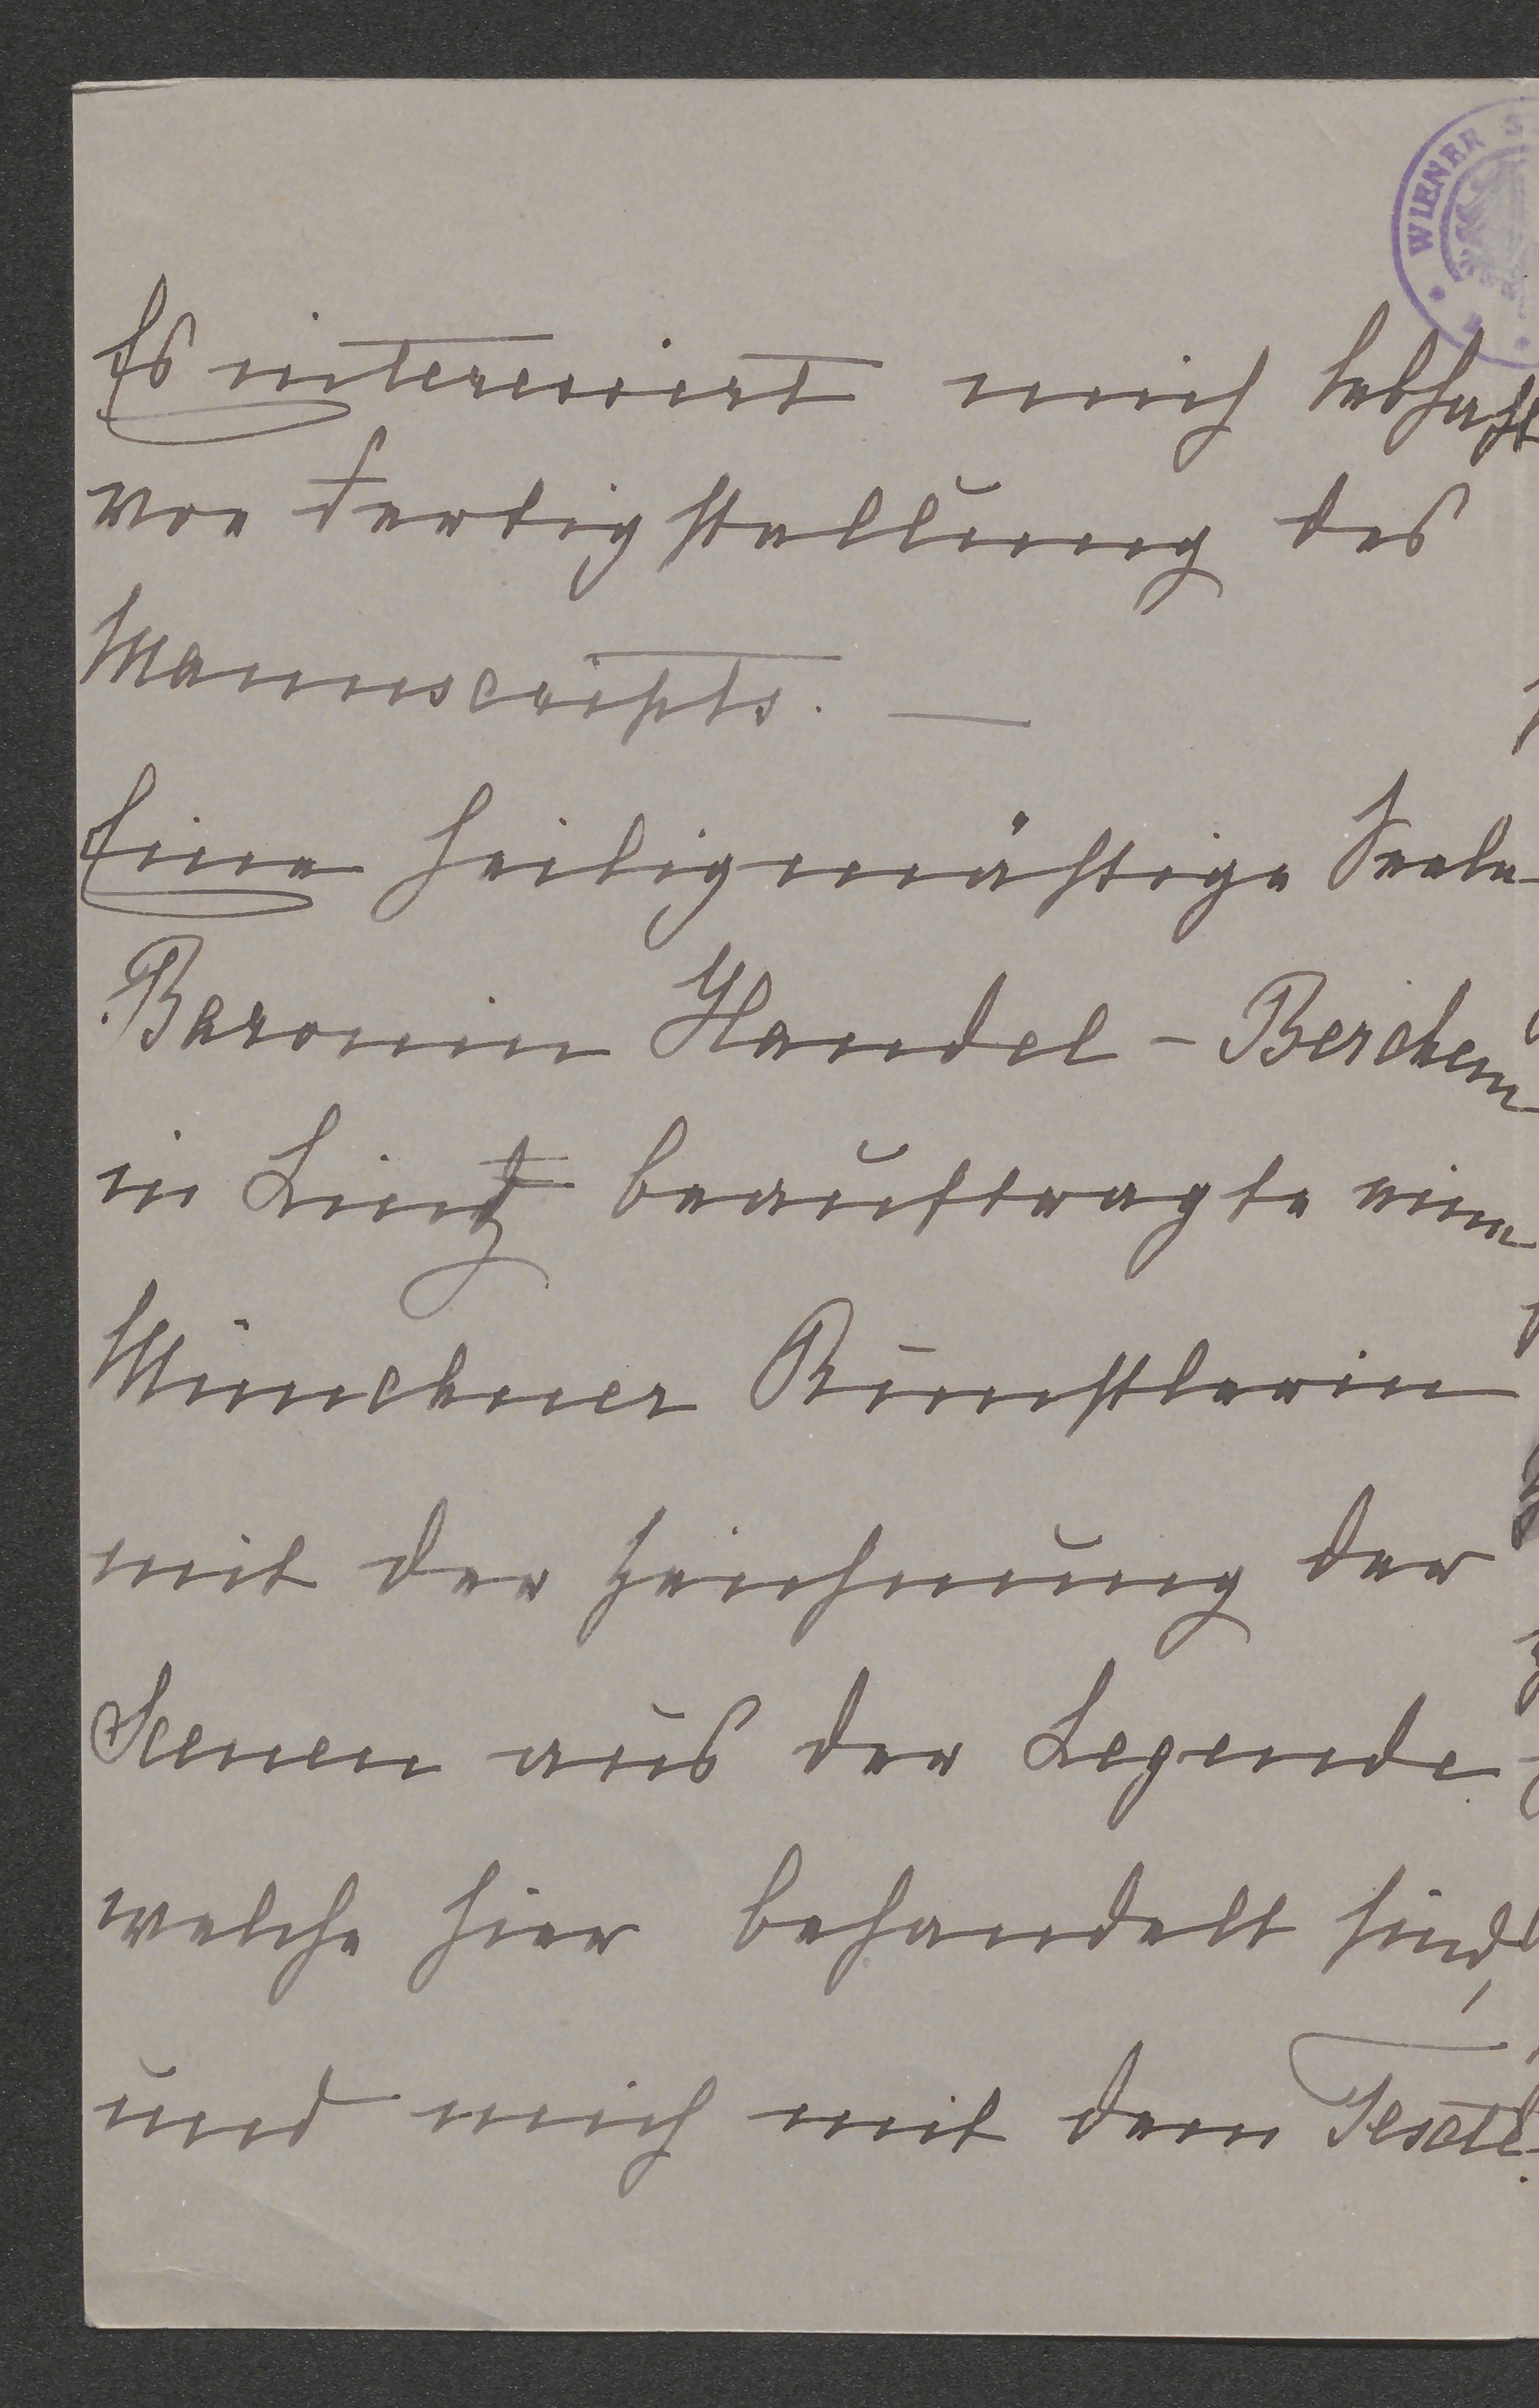 WIENER S
Es interessiert mich lebhaft
vor Fertigstellung des
Manuscripts. —
Eine heiligmäßige Seele
Baronin Handel-Berchem
in Lintz beauftragte eine
Münchner Künstlerin
mit der Zeichnung der
Scenen aus der Legende
welche hier behandelt sind,
und mich mit dem Texte.